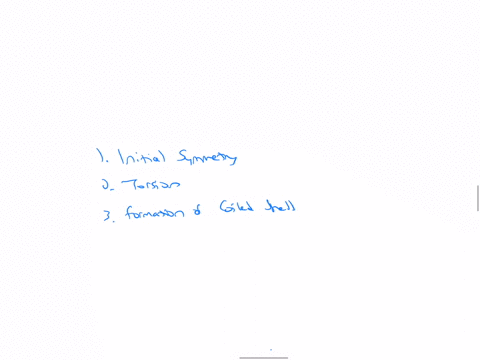 1. Initial Symmetry
2. Torsion
3. Formation of Coiled Shell